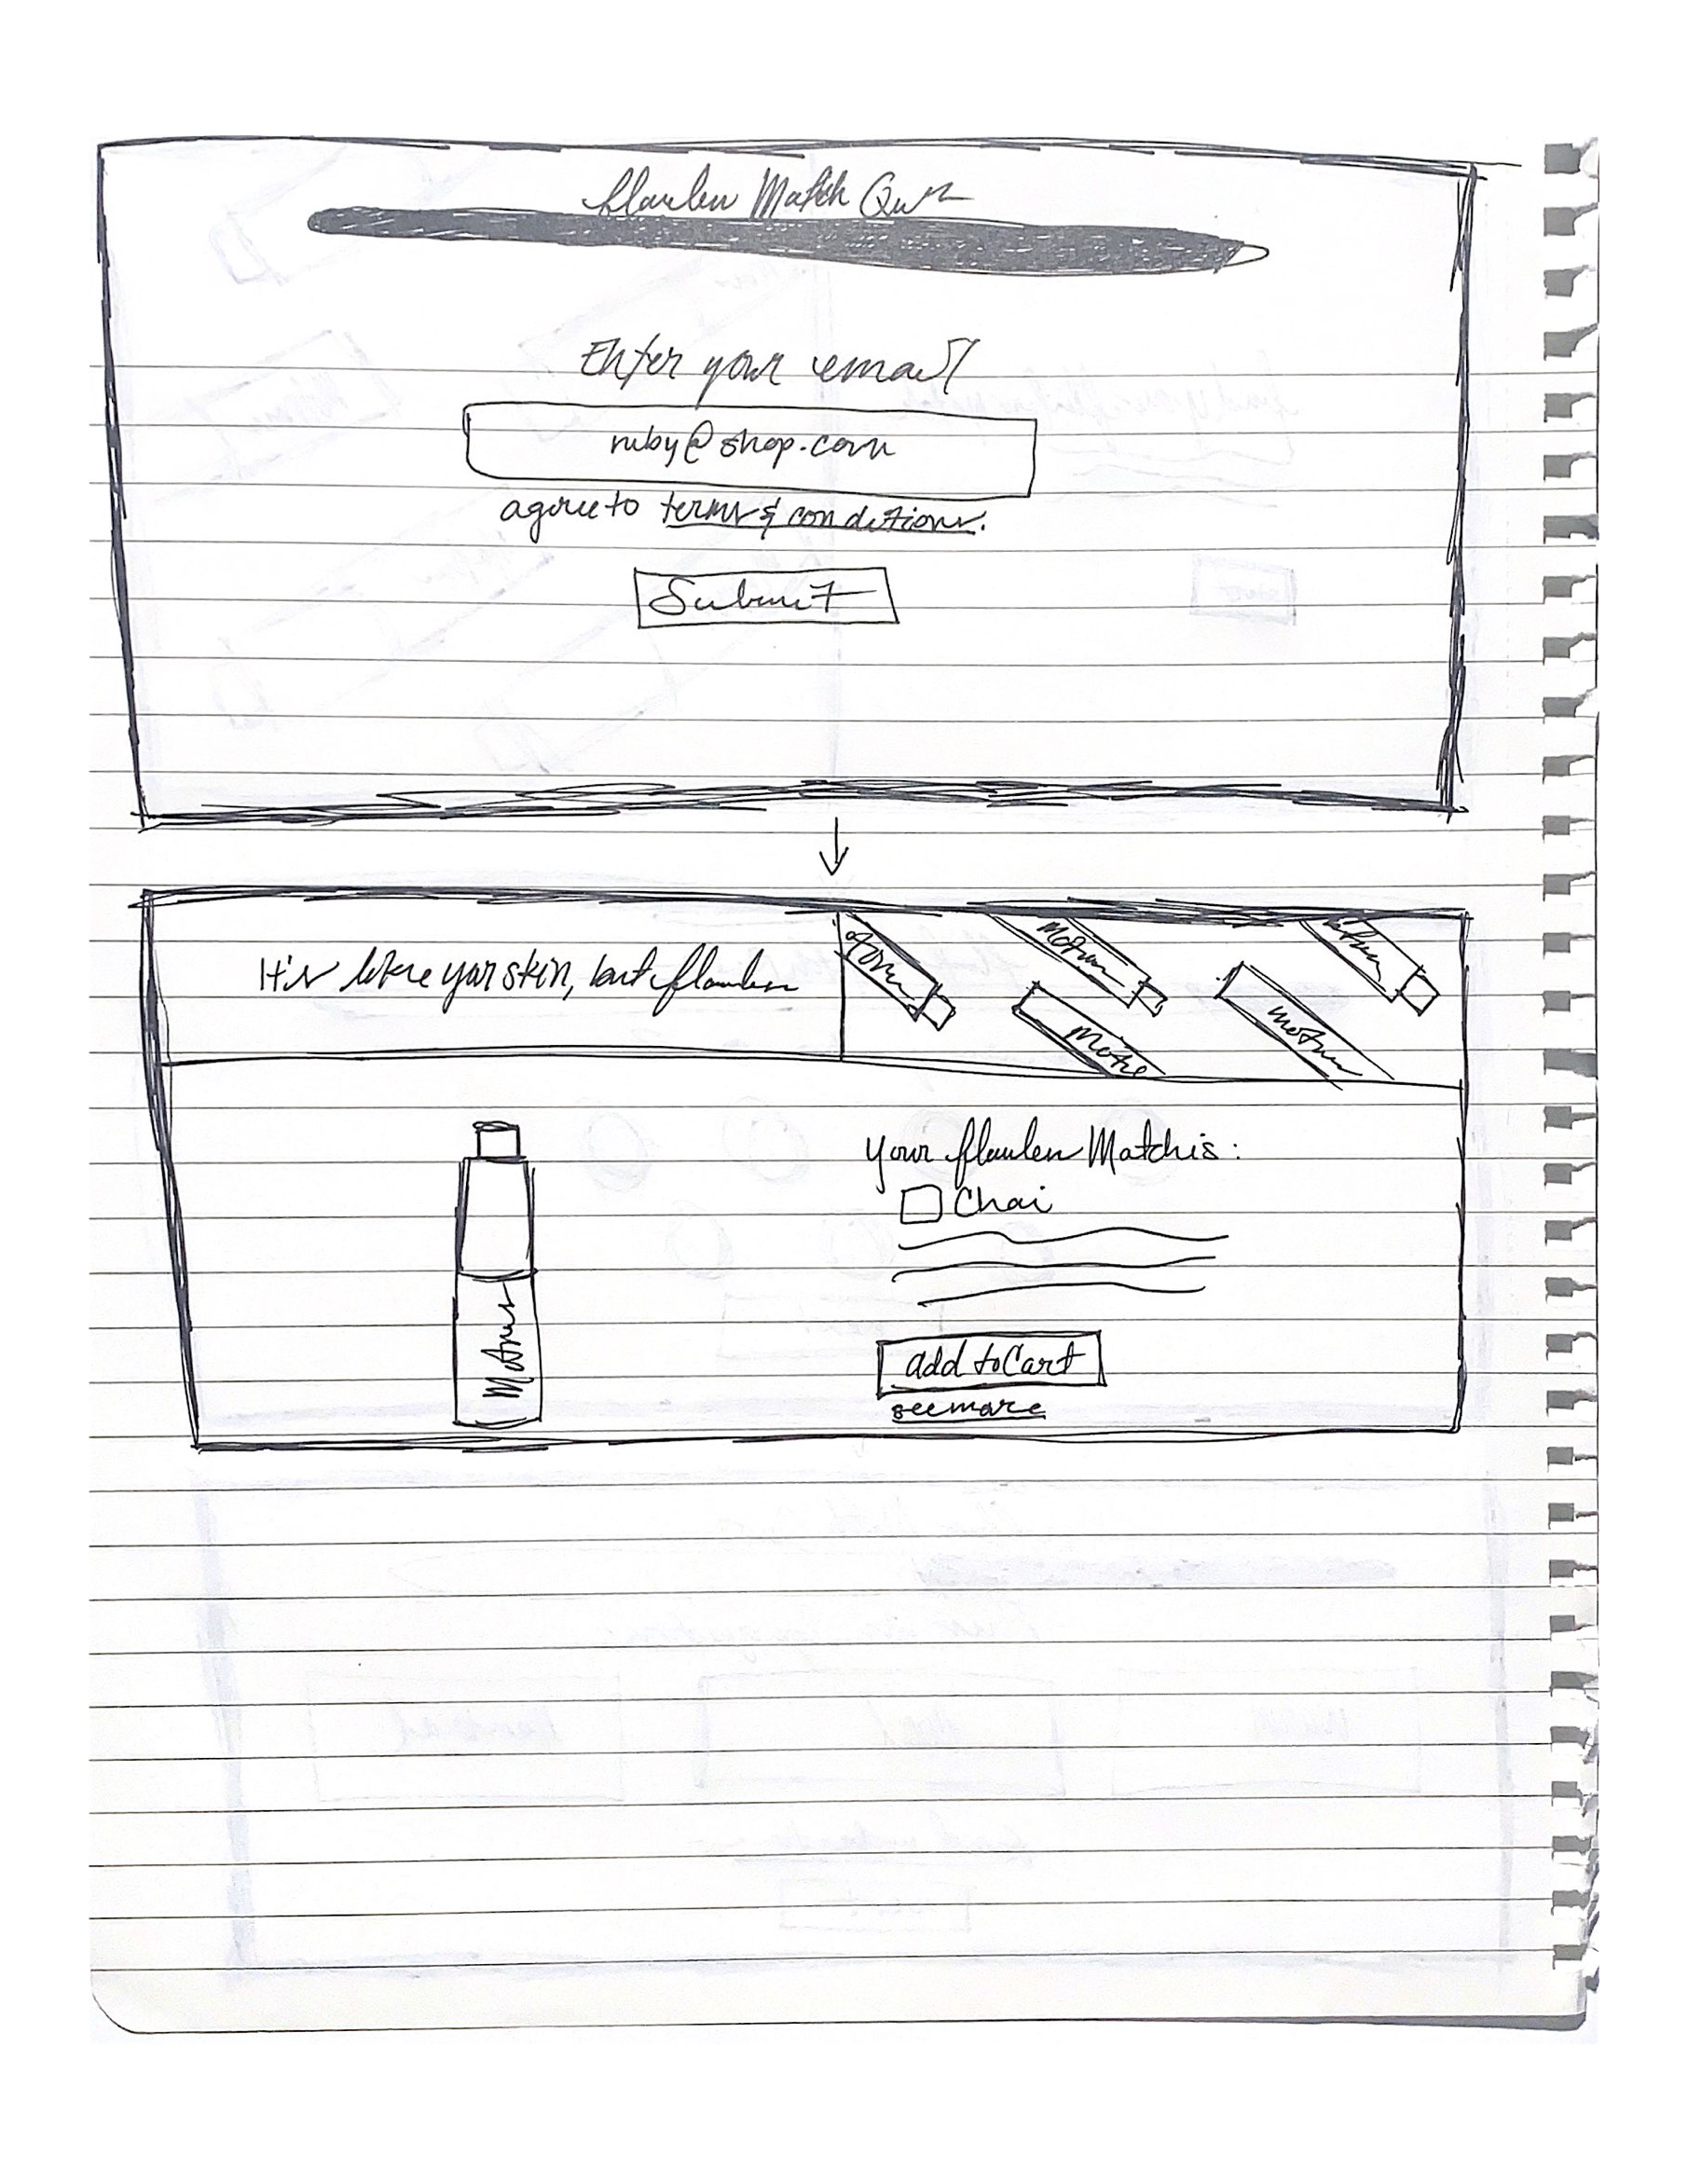 flawless Match Quiz
Enter your email
ruby@shop.com
agree to terms & conditions.
Submit
It's like your skin, but flawless
your flawless Match is:
Chai
add to Cart
see more